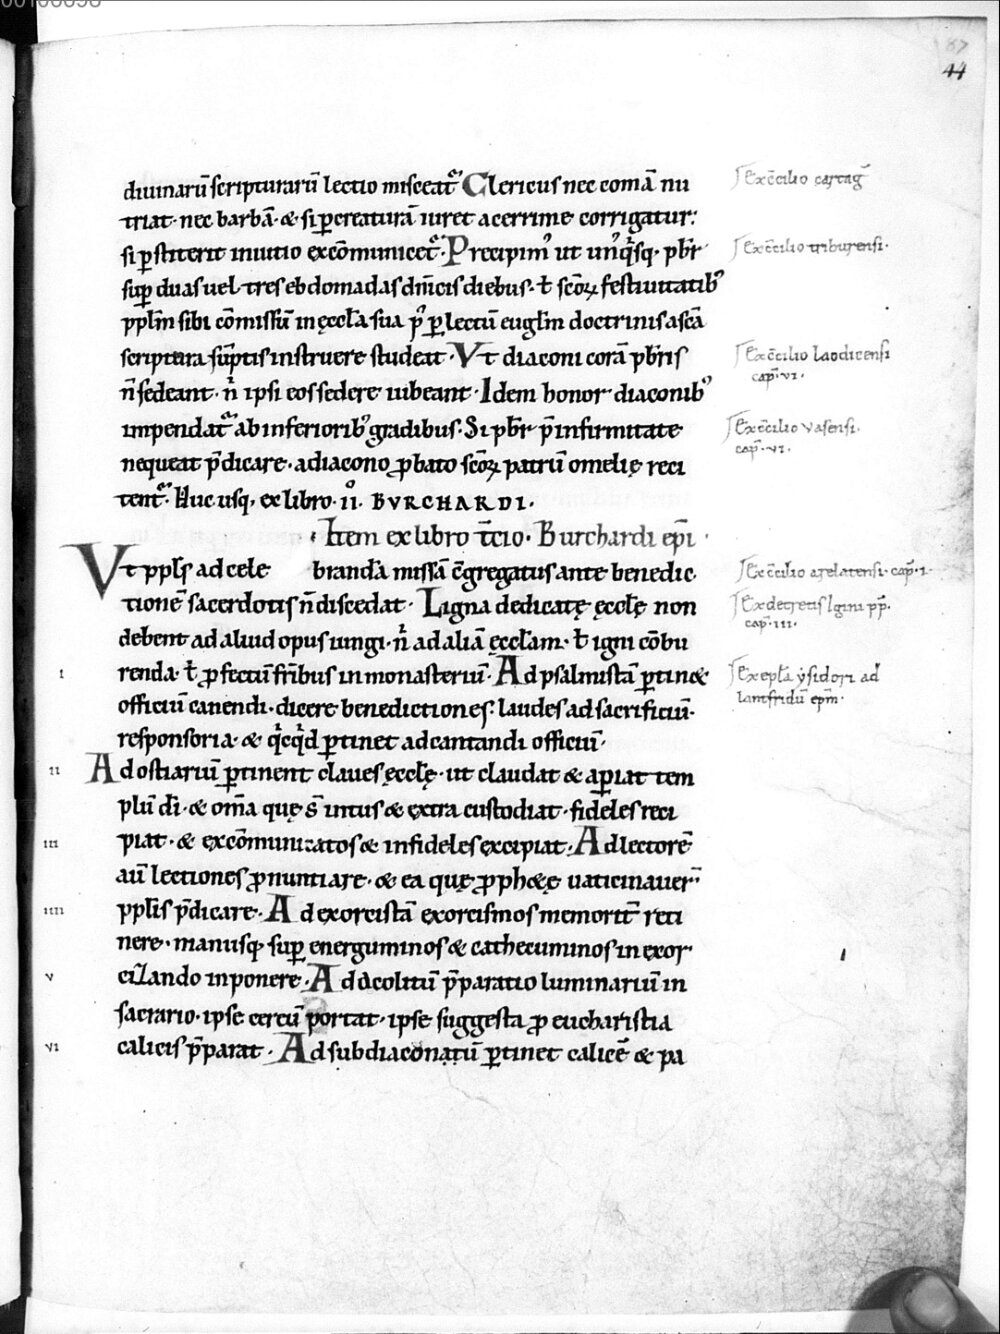 67
44
diuinarū scripturarū lectio misceat᷑ Clericus nec comā nu
triat · nec barbā · & si p creaturā iuret acerrime corrigatur :
si p̱stiterit inuitio excōmunicet᷑ · Precipim᷒ ut un᷒q̇sq; p̄br̄
sup̱ duas uel tres ebdomadas dn̄icis diebus · ł scōꝝ festiuitatib᷒
ppłm sibi cōmissū in ęccła sua p᷒ p̱lectū eugłm doctrinis a scā
scriptura sūptis instruere studeat · Vt diaconi corā p̄br̄is
n̄ sedeant · n̊ ipsi eos sedere iubeant · Idem honor diaconib᷒
impendat᷑ ab inferiorib᷒ gradibus · Si p̄br̄ p̄ infirmitate
nequeat p̄dicare · a diacono ꝓbato scōꝝ patrū omelię reci
tent᷑ · Huc usq; ex libro · ii᷒ · BVRCHARDI ·
· Item ex libro t̄cio · Burchardi ep̄i ·
Vt ppłs ad cele brandā missā c̄gregatus ante benedic
tionē sacerdotis n̄ discedat · Ligna dedicatę ęccłę non
debent ad aliud opus iungi · n̊ ad aliā ęccłam · ł igni cōbu
renda · ł ꝓfectū fr̄ibus in monasteriū · Ad psalmistā p̱tin&
officiū canendi · dicere benedictiones : laudes ad sacrificiū ·
responsoria · & q̇cq̇d p̱tinet ad cantandi officiū ·
Ad ostiariū p̱tinent claues ęccłę · ut claudat & ap̱iat tem
plū dī · & om̄a quę s̄ intus & extra custodiat · fideles reci
piat · & excōmunicatos & infideles excipiat · Ad lectorē
aū lectiones ꝓnuntiare · & ea quę ꝓph&ę uaticinauer᷑
ppłis p̄dicare · Ad exorcistā exorcismos memorit̄ reti
nere · manusq; sup̱ energuminos & cathecuminos in exor
cizando inponere · Ad acolitū p̄paratio luminariū in
sacrario · ipse cereū portat · ipse suggesta ꝓ eucharistia
calicis p̄parat · Ad subdiaconatū p̱tinet calicē & pa
i
ii
iii
iiii
v
vi
Ex c̄cilio cartag̅
Ex c̄cilio triburensi ·
Ex c̄cilio laodicensi
cap̄ · vi ·
Ex c̄cilio vasensi ·
cap̄ · vi ·
Ex c̄cilio arelatensi · cap̄ · i ·
Ex decretis Igini pp̄ ·
cap̄ · iii ·
Ex epła ysidori ad
lantfridū ep̄m ·